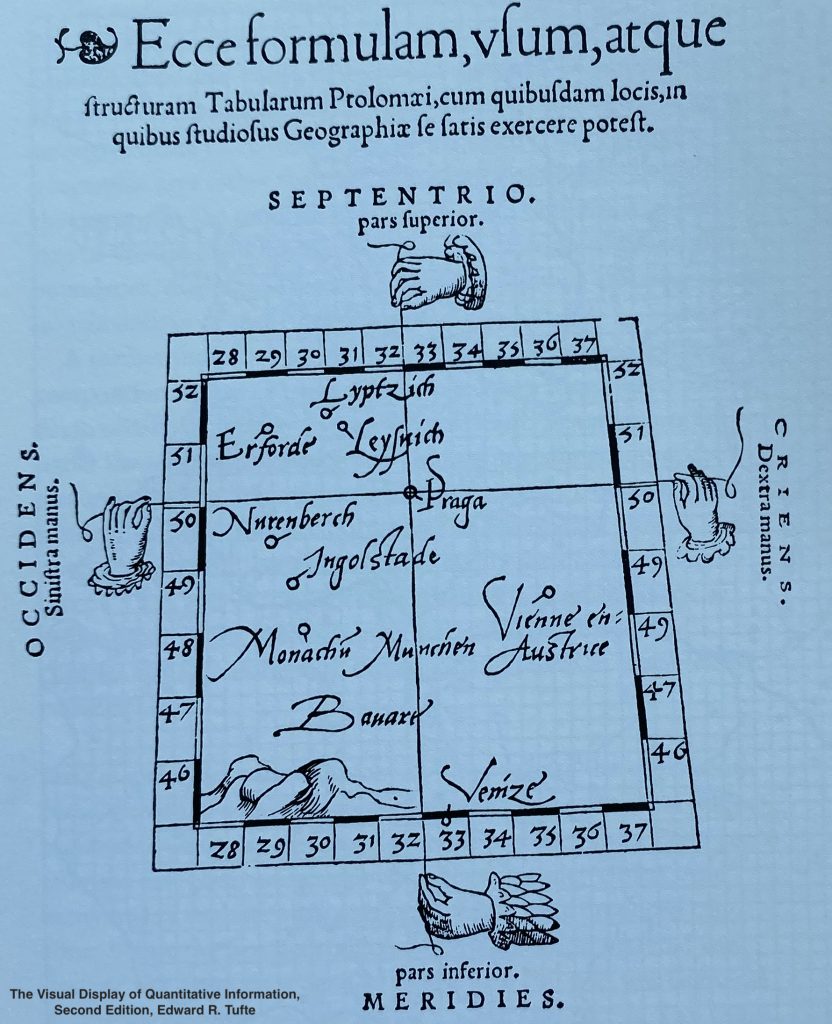 Ecce formulam, vſum, atque
ſtructuram Tabularum Ptolomæi, cum quibuſdam locis, in
quibus ſtudioſus Geographiæ ſe ſatis exercere poteſt.
SEPTENTRIO.
pars ſuperior.
28 29 30 31 32 33 34 35 36 37
52 52
Lyptzich
Erforde Leyſnich
51 51
OCCIDENS.
Siniſtra manus.
CRIENS.
Dextra manus.
50 50
Praga
Nurenberch
Ingolstade
49 49
Vienne en:
Austrice
48 49
Monachu Munchen
47 47
Bauare
46 46
Venize
28 29 30 31 32 33 34 35 36 37
pars inferior.
MERIDIES.
The Visual Display of Quantitative Information,
Second Edition, Edward R. Tufte